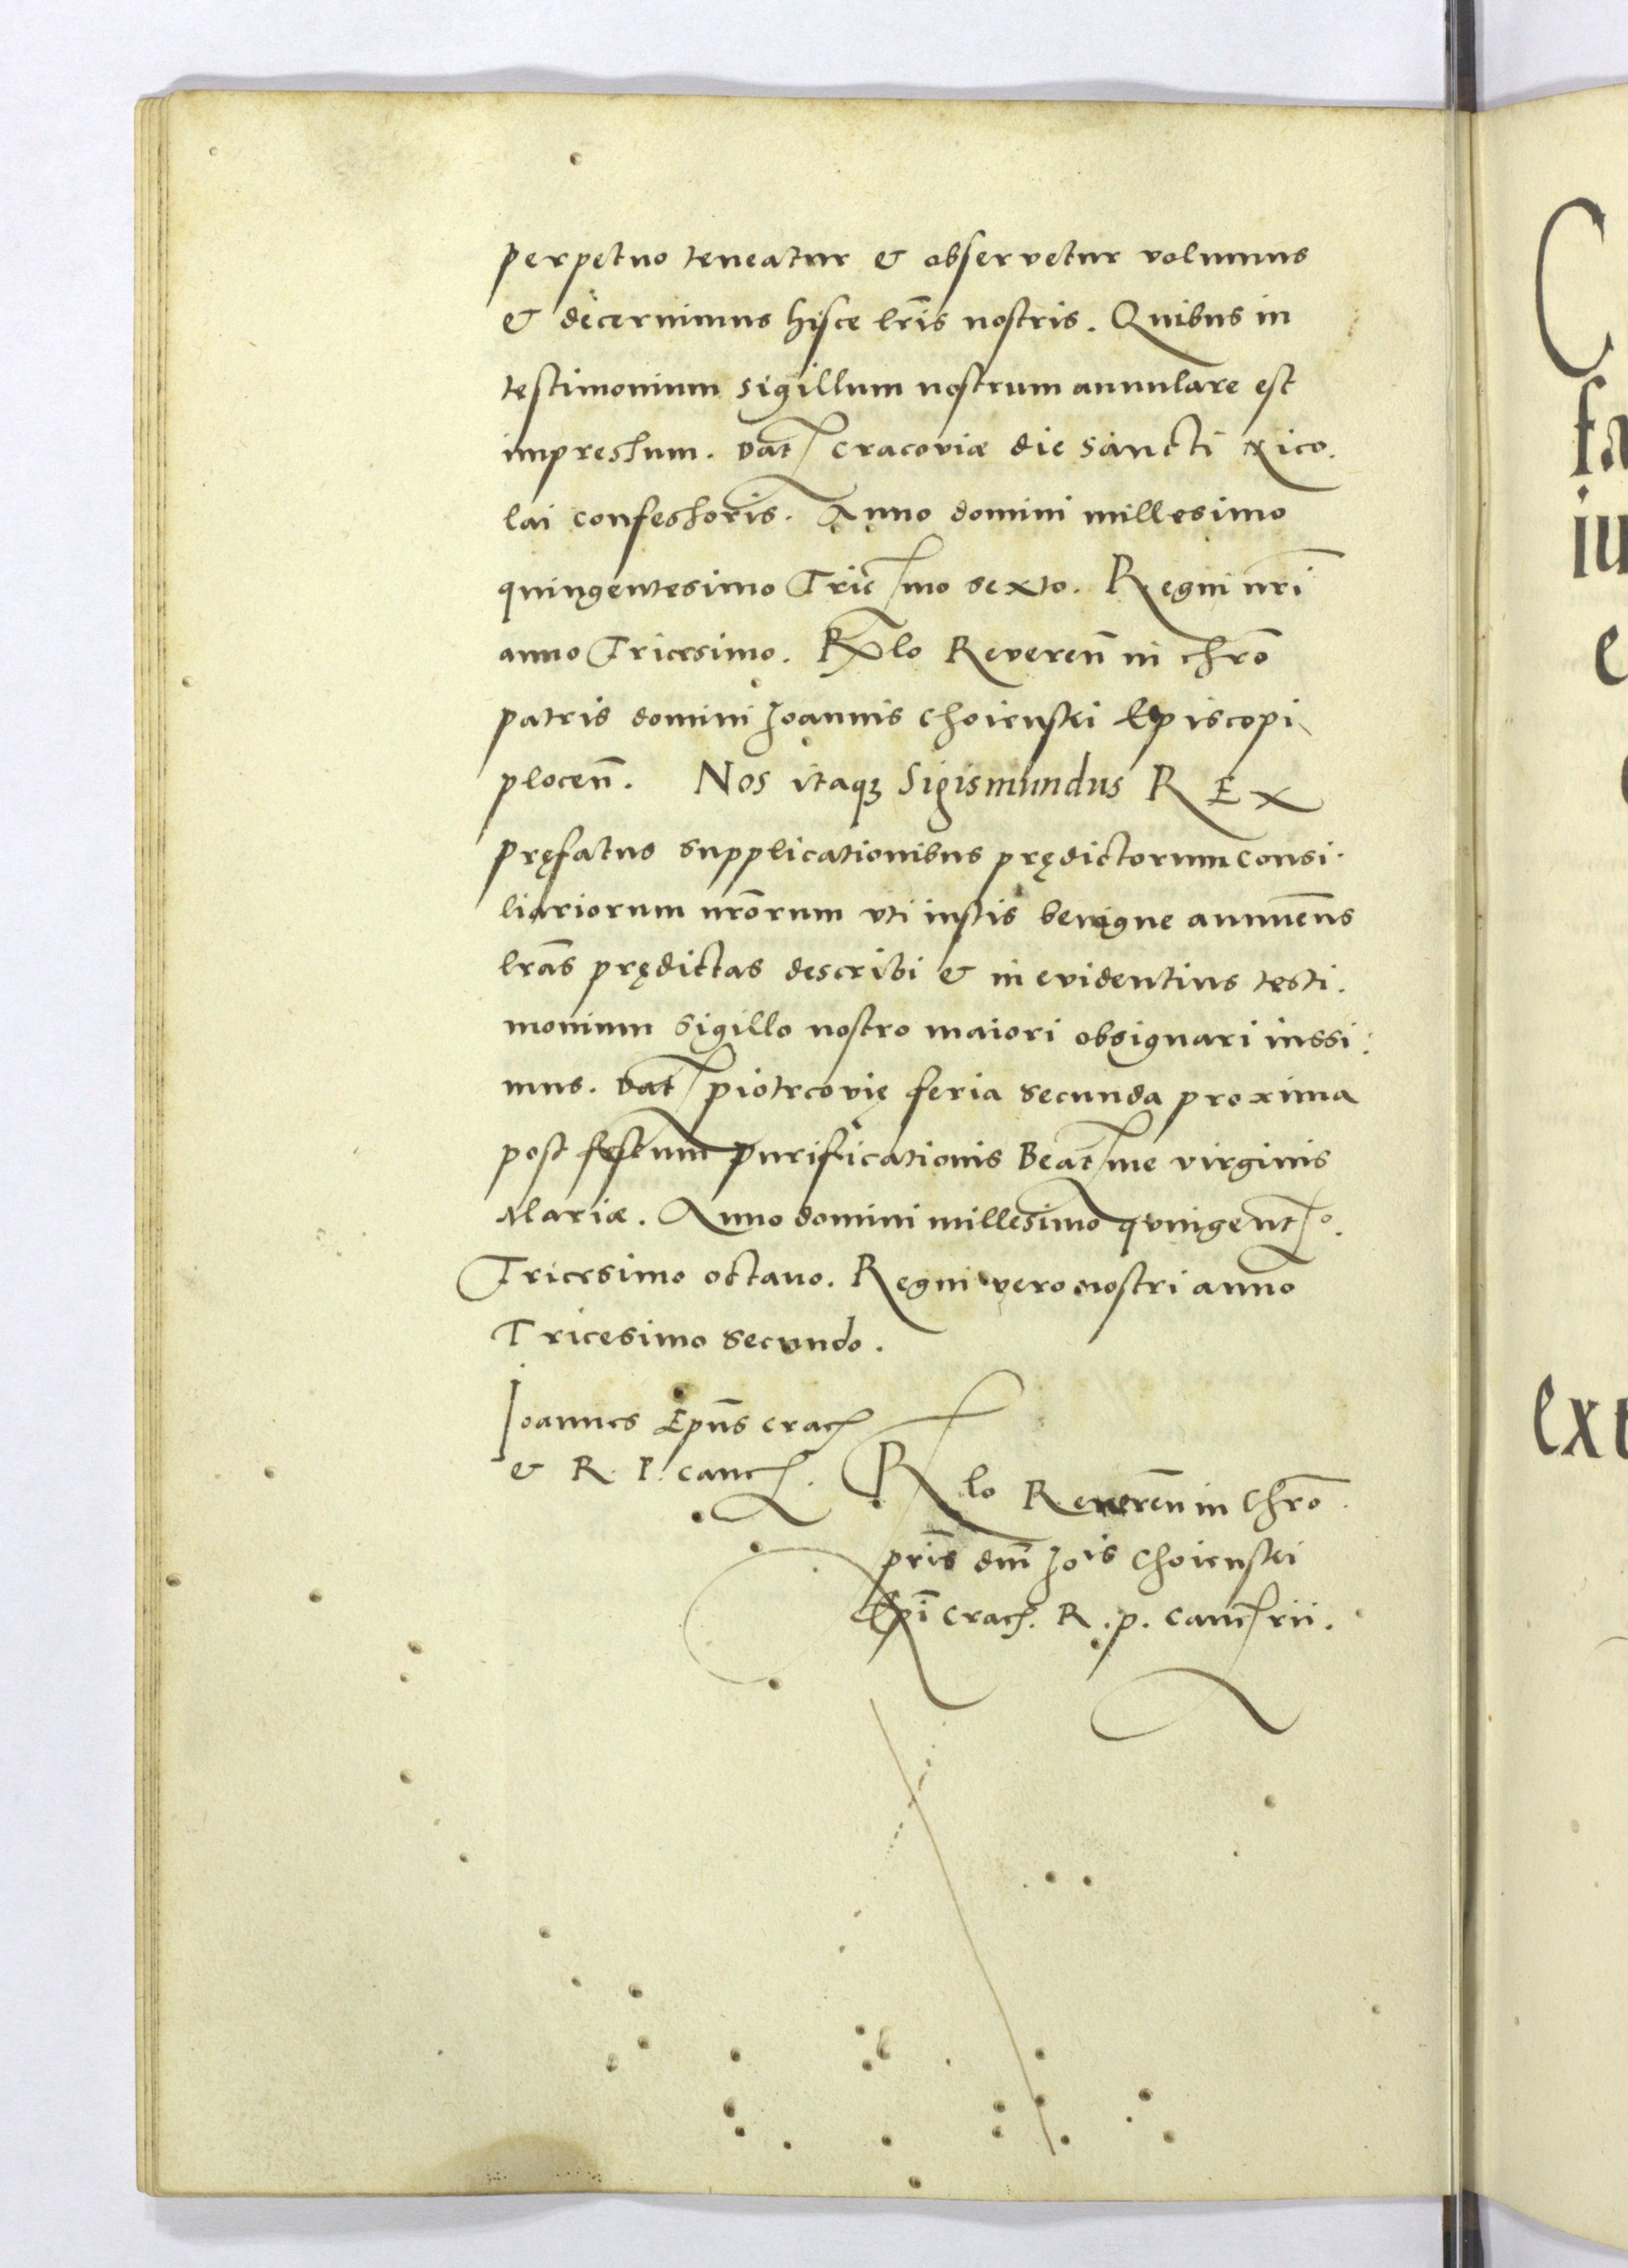 perpetuo teneatur & observetur volumus
& decernimus hisce lr̃is nostris. Quibus in
testimonium sigillum nostrum annulare est
impressum. Dat Cracoviæ die sancti Nico.
lai confessoris. Anno domini millesimo
quingentesimo Tricmo sexto. Regni nr̃i
anno Tricesimo. Rlo Reveren̄ in chr̃o
patris domini Joannis Choienski Episcopi
plocen̄. Nos itaqꝫ Sigismundus REX
pręfatus supplicationibus prędictorum consi.
liariorum nr̃orum uti iustis benigne annuēns
lr̃as prędictas describi & in evidentius testi.
monium sigillo nostro maiori obsignari iussi:
mus. Dat piotrcovię feria secunda proxima
post festum purificationis Beatme virginis
Mariæ. Anno domini millesimo quingento.
Tricesimo octavo. Regni vero nostri anno
Tricesimo secundo.
Joannes Ep̄us crac
& R. P. canc.
Rlo Reveren̄ in Chr̃o
pr̃is dn̄i Jois Choienski
Ep̄i crac. R. p. cancrii.
C
fa
iu
e
ext